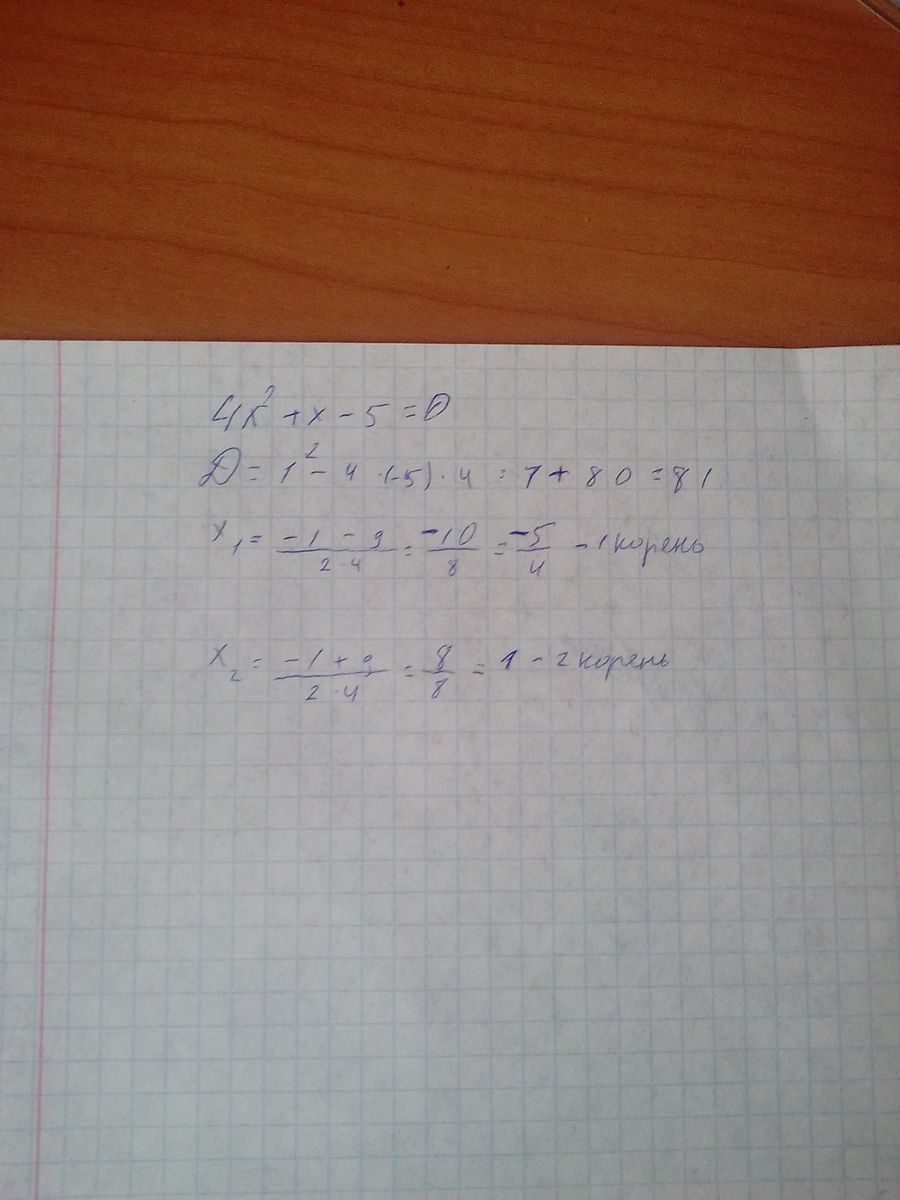 4x² + x - 5 = 0
D = 1² - 4 · (-5) · 4 = 1 + 80 = 81
x₁ = (-1 - 9)/(2·4) = -10/8 = -5/4 - 1 корень
x₂ = (-1 + 9)/(2·4) = 8/8 = 1 - 2 корень